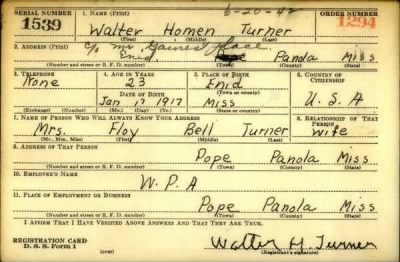 SERIAL NUMBER 1. NAME (Print) 6-20-42 ORDER NUMBER
1539 Walter Homen Turner 1294
(First) (Middle) (Last)
2. ADDRESS (Print) c/o Mr. Gaines Place.
Enid. Panola Miss
(Number and street or R. F. D. number) (Town) (County) (State)
3. TELEPHONE 4. AGE IN YEARS 5. PLACE OF BIRTH 6. COUNTRY OF CITIZENSHIP
None 23 Enid
DATE OF BIRTH (Town or county)
Jan 17 1917 Miss U. S. A
(Exchange) (Number) (Mo.) (Day) (Yr.) (State or country)
7. NAME OF PERSON WHO WILL ALWAYS KNOW YOUR ADDRESS 8. RELATIONSHIP OF THAT PERSON
Mrs. Floy Bell Turner Wife
(Mr., Mrs., Miss) (First) (Middle) (Last)
9. ADDRESS OF THAT PERSON
Pope Panola Miss
(Number and street or R. F. D. number) (Town) (County) (State)
10. EMPLOYER'S NAME
W. P. A
11. PLACE OF EMPLOYMENT OR BUSINESS
Pope Panola Miss
(Number and street or R. F. D. number) (Town) (County) (State)
I AFFIRM THAT I HAVE VERIFIED ABOVE ANSWERS AND THAT THEY ARE TRUE.
REGISTRATION CARD
D. S. S. Form 1 (over) Walter H. Turner
(Registrant's signature)